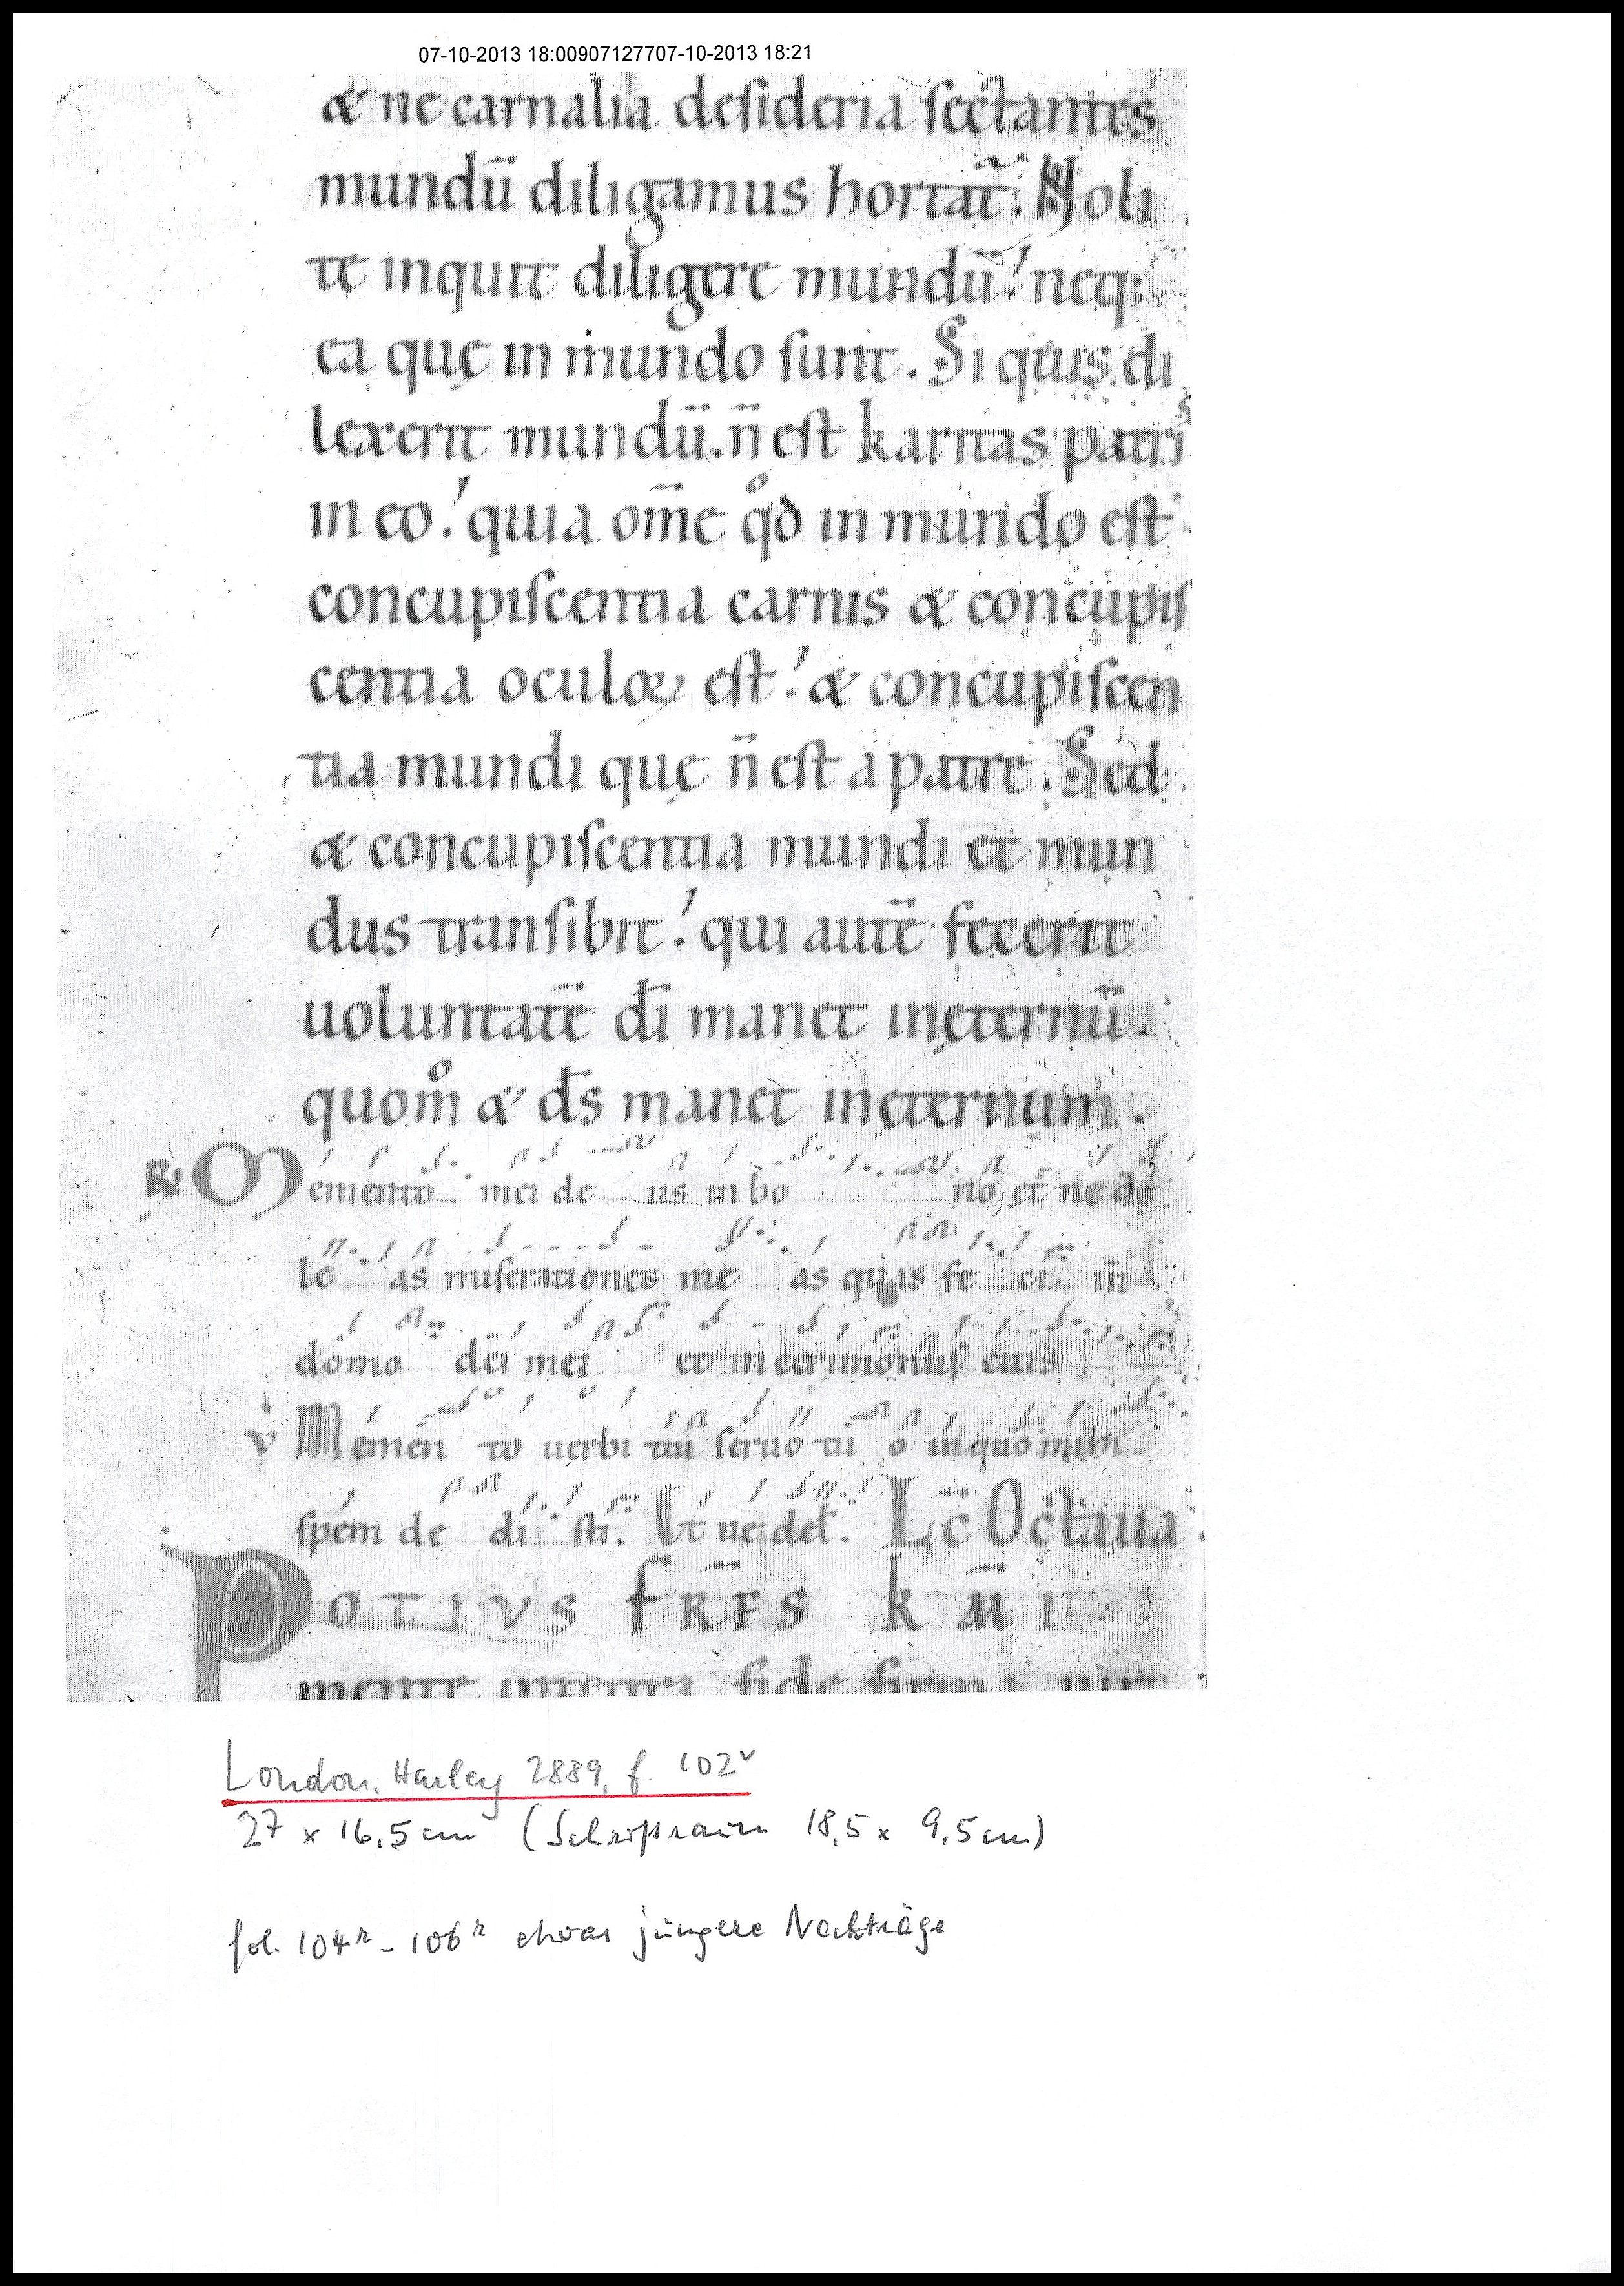 07-10-2013 18:00907127707-10-2013 18:21
& ne carnalia desideria sectantes
mundū diligamus hortat̄. Noli
te inquit diligere mundū! neq;
ea quę in mundo sunt. Si quis di
lexerit mundū. n̄ est karitas patris
in eo! quia om̄e qͦd in mundo est
concupiscentia carnis & concupis
centia oculoꝝ est! & concupiscen
tia mundi quę n̄ est a patre. Sed
& concupiscentia mundi et mun
dus transibit! qui autē fecerit
uoluntatē dī manet inęternū.
quom̊ & ds̄ manet inęternum.
R Memento mei de us in bo no et ne de
le as miserationes me as quas fe ci in
domo dei mei et in cerimoniis eius
V Memen to uerbi tui seruo tu o in quo mihi
spem de di sti. Et ne del. Lc̄ Octaua.
POTIVS FRĒS KM̄I
mente intenta fide firma
London, Harley 2889, f. 102v
27 x 16,5 cm (Schriftraum 18,5 x 9,5 cm)
fol. 104r - 106r etwas jüngere Nachträge